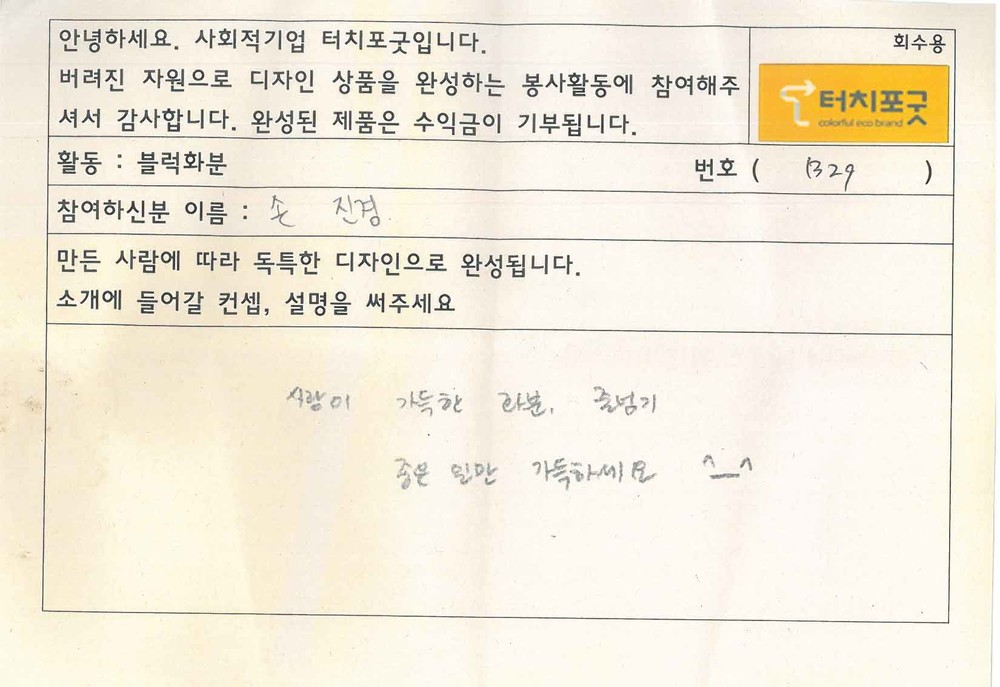 안녕하세요. 사회적기업 터치포굿입니다.
버려진 자원으로 디자인 상품을 완성하는 봉사활동에 참여해주
셔서 감사합니다. 완성된 제품은 수익금이 기부됩니다.
회수용
터치포굿
colorful eco brand
활동 : 블럭화분
번호 ( B29 )
참여하신분 이름 : 손 진경.
만든 사람에 따라 독특한 디자인으로 완성됩니다.
소개에 들어갈 컨셉, 설명을 써주세요
사랑이 가득한 화분, 줄넘기
좋은 일만 가득하세요 ^_^